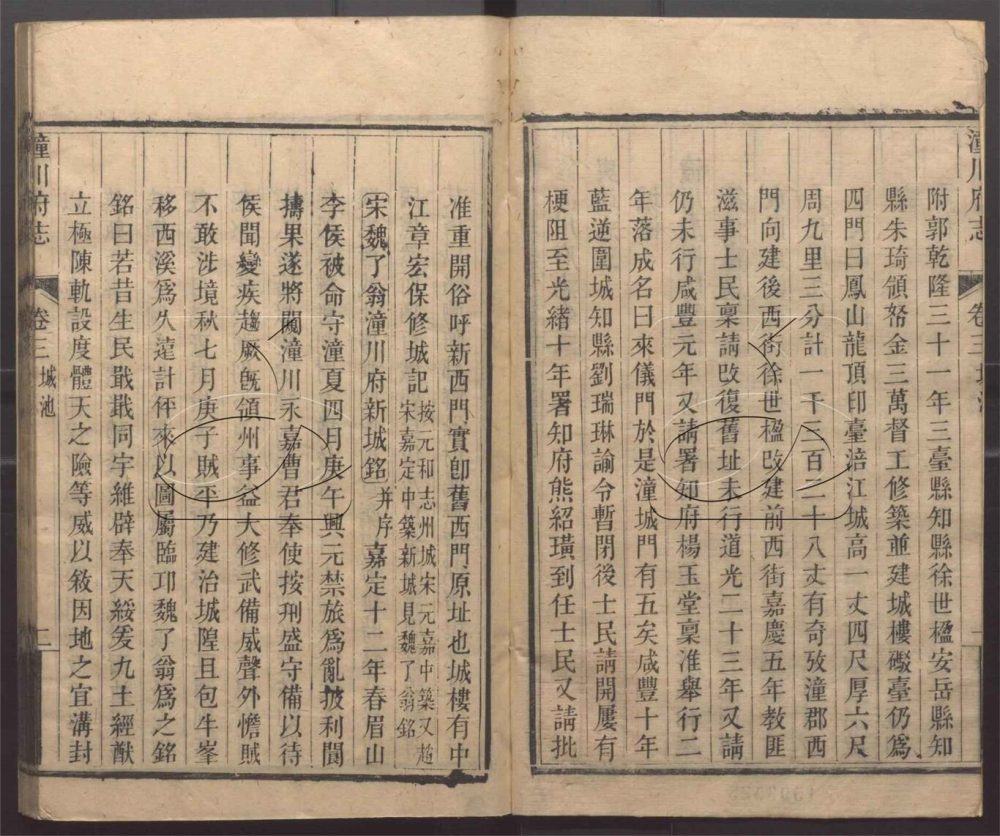 潼川府志
卷三
附郭乾隆三十一年三臺縣知縣徐世楹安岳縣知
縣朱琦領帑金三萬督工修築並建城樓礮臺仍爲
四門曰鳳山龍頂印臺涪江城高一丈四尺厚六尺
周九里三分計一千三百二十八丈有奇攷潼郡西
門向建後西街徐世楹改建前西街嘉慶五年教匪
滋事士民稟請改復舊址未行道光二十三年又請
仍未行咸豐元年又請署知府楊玉堂稟准舉行二
年落成名曰來儀門於是潼城門有五矣咸豐十年
藍逆圍城知縣劉瑞琳諭令暫閉後士民請開屢有
梗阻至光緒十年署知府熊紹璜到任士民又請批
准重開俗呼新西門實卽舊西門原址也城樓有中
江章宏保修城記按元和志州城宋元嘉中築又趙
宋嘉定中築新城見魏了翁銘
宋魏了翁潼川府新城銘并序嘉定十二年春眉山
李侯被命守潼夏四月庚午興元禁旅爲亂披利閬
擣果遂將闖潼川永嘉曹君奉使按刑盛守備以待
侯聞變疾趨厥旣領州事益大修武備威聲外憺賊
不敢涉境秋七月庚子賊平乃建治城隍且包牛峯
移西溪爲久遠計伻來以圖屬臨邛魏了翁爲之銘
銘曰若昔生民戢戢同宇維辟奉天綏爰九土經猷
立極陳軌設度體天之險等威以敘因地之宜溝封
潼川府志
卷三
城池
二